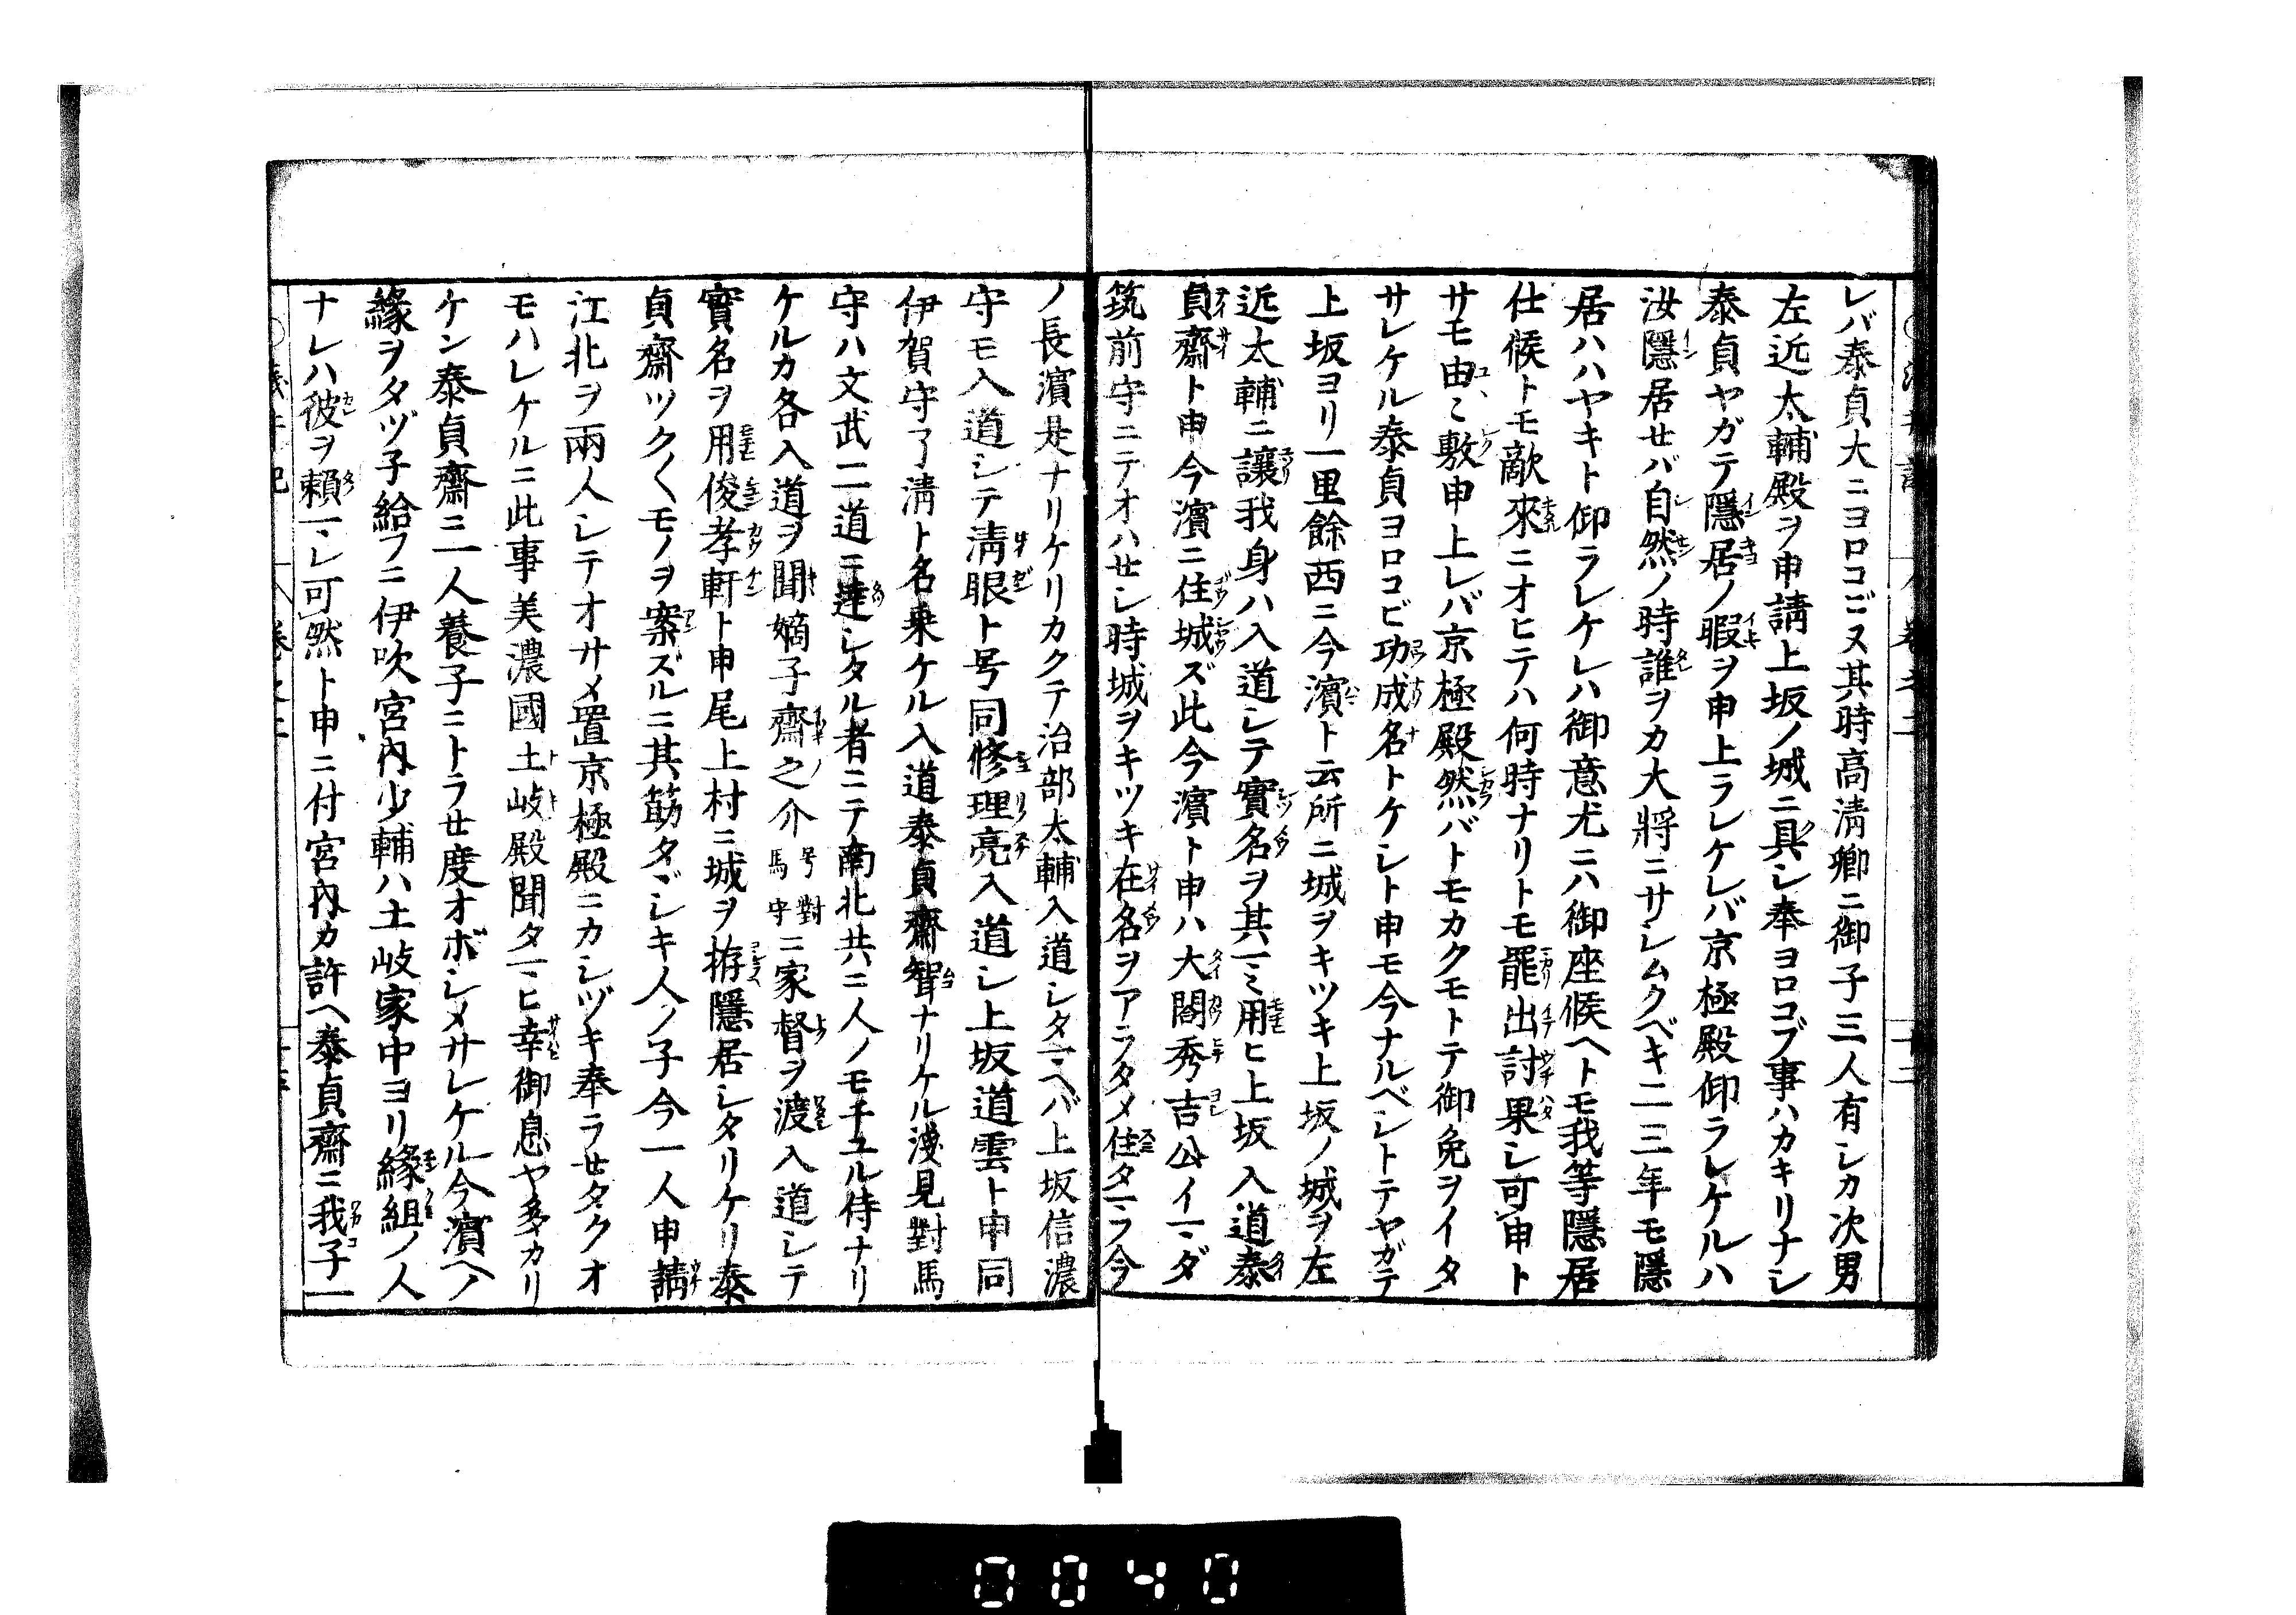 レバ泰貞大ニヨロコビヌ其時高清卿ニ御子三人有シカ次男
左近太輔殿ヲ申請上坂ノ城ニ具シ奉ヨロコブ事ハカキリナシ
泰貞ヤガテ隱居ノ暇ヲ申上ラレケレバ京極殿仰ラレケルハ
汝隱居せバ自然ノ時誰ヲカ大將ニサシムクベキ二三年モ隱
居ハハヤキト仰ラレケレハ御意尤ニハ御座候ヘトモ我等隱居
仕候トモ敵來ニオヒテハ何時ナリトモ罷出討果シ可申ト
サモ由〻敷申上レバ京極殿然バトモカクモトテ御免ヲイタ
サレケル泰貞ヨロコビ功成名トケシト申モ今ナルベシトテヤガテ
上坂ヨリ一里餘西ニ今濱ト云所ニ城ヲキツキ上坂ノ城ヲ左
近太輔ニ讓我身ハ入道シテ實名ヲ其〻用ヒ上坂入道泰
貞齋ト申今濱ニ住城ズ此今濱ト申ハ大閤秀吉公イマダ
筑前守ニテオハせシ時城ヲキツキ在名ヲアラタメ住タマフ今
ノ長濱是ナリケリカクテ治部太輔入道シタマヘバ上坂信濃
守モ入道シテ清眼ト号同修理亮入道シ上坂道雲ト申同
伊賀守了清ト名乘ケル入道泰貞齋聟ナリケル淺見對馬
守ハ文武二道ニ達シタル者ニテ南北共ニ人ノモチユル侍ナリ
ケルカ各入道ヲ聞嫡子齋之介号對馬守ニ家督ヲ渡入道シテ
實名ヲ用俊孝軒ト申尾上村ニ城ヲ拵隱居シタリケリ泰
貞齋ツク〱モノヲ案ズルニ其筋タヾシキ人ノ子今一人申請
江北ヲ兩人シテオサメ置京極殿ニカシヅキ奉ラせタクオ
モハレケルニ此事美濃國土岐殿聞タマヒ幸御息ヤ多カリ
ケン泰貞齋ニ一人養子ニトラせ度オボシメサレケル今濱ヘノ
緣ヲタヅ子給フニ伊吹宮內少輔ハ土岐家中ヨリ緣組ノ人
ナレハ彼ヲ賴マレ可然ト申ニ付宮內カ許ヘ泰貞齋ニ我子一
0040